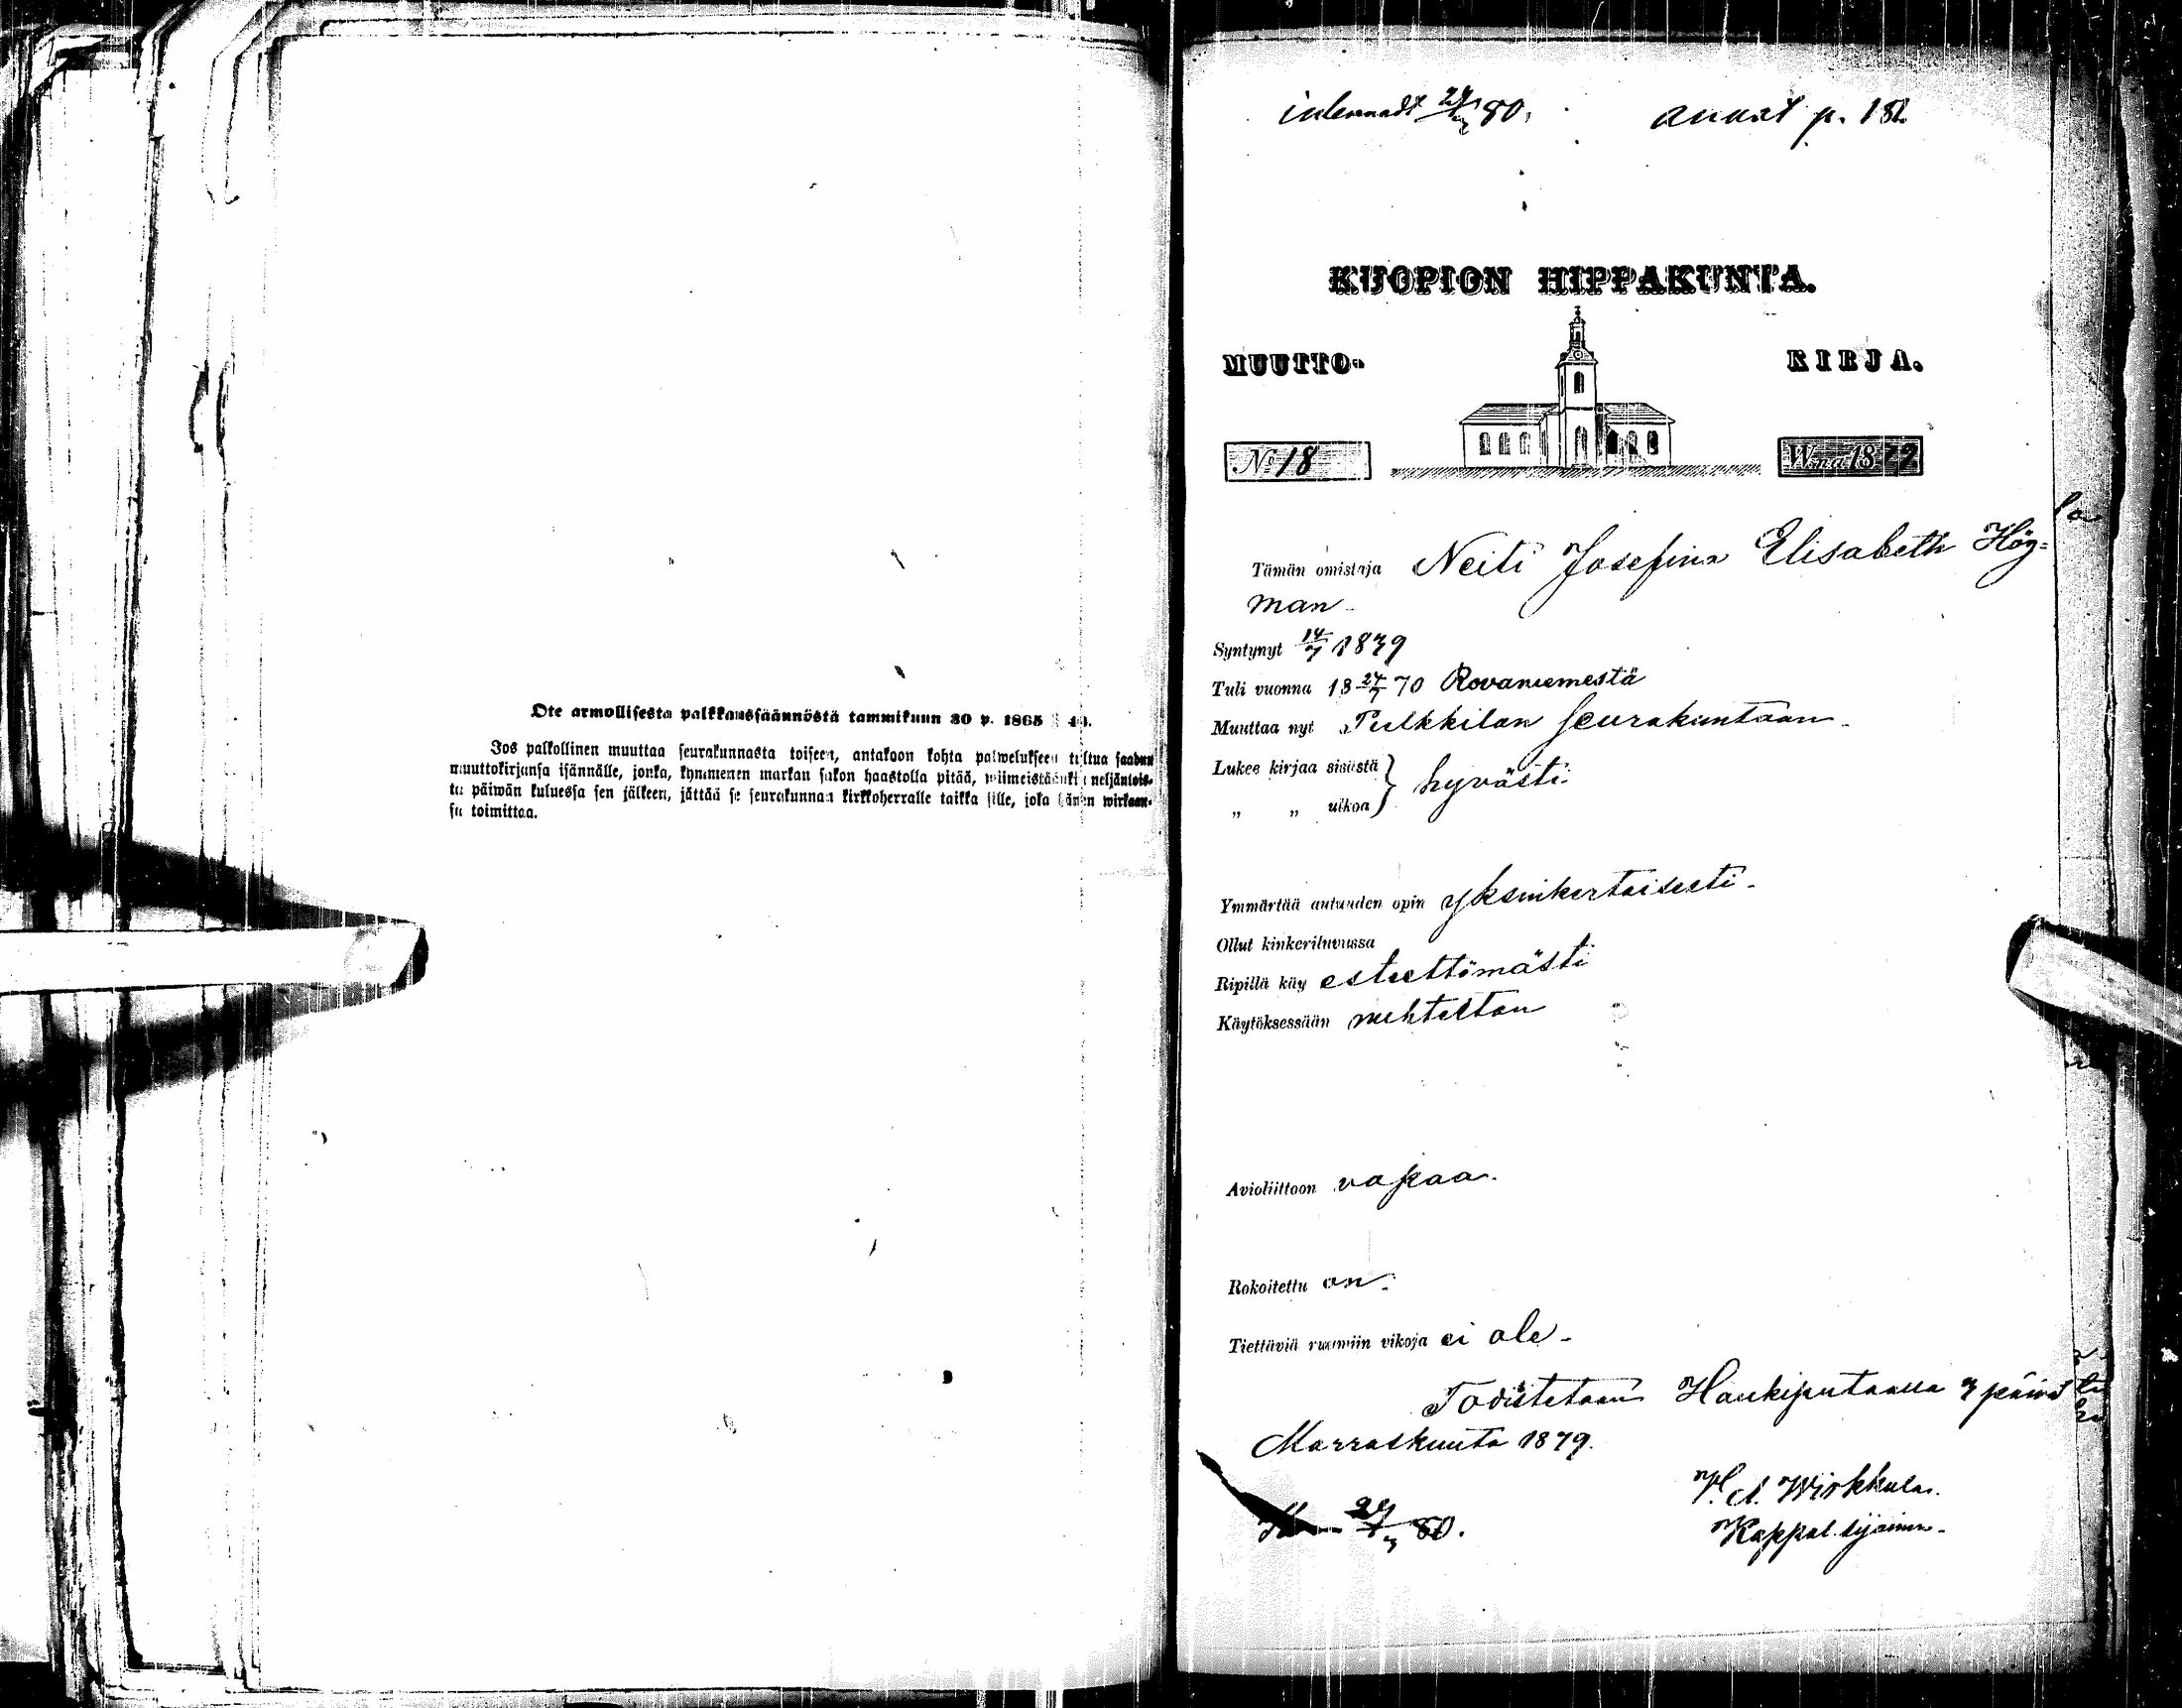 Ote armollisesta palkkaussäännöstä tammikuun 30 p. 1865 §
Jos palkollinen muuttaa seurakunnasta toiseen, antakoon kohta palwelukseen tultua saadun
muuttokirjansa isännälle, jonka, kymmenen markan sakon haastolla pitää, wiimeistäänkin neljäntois-
ta päiwän kuluessa sen jälkeen, jättää se seurakunnan kirkkoherralle taikka sille, joka hänen wirkaan-
sa toimittaa.
80. p. 181.
KUOPION HIPPAKUNTA.
MUUTTO- KIRJA.
No 18 W:na 1879
Tämän omistaja Neiti Josefina Elisabeth Hög=
man
Syntynyt 14/7 1839
Tuli vuonna 18 24/7 70 Rovaniemestä
Muuttaa nyt Pulkkilan seurakuntaan
Lukee kirjaa sisästä } hyvästi
„ „ ulkoa
Ymmärtää autuuden opin yksinkertaisesti
Ollut kinkeriluvussa
Ripillä käy esteettömästi
Käytöksessään nuhteeton
Avioliittoon vapaa.
Rokoitettu on.
Tiettäviä ruumiin vikoja ei ole
Todistetaan Haukiputaalla 3 päivä
Marraskuuta 1879.
80.
Kappal.